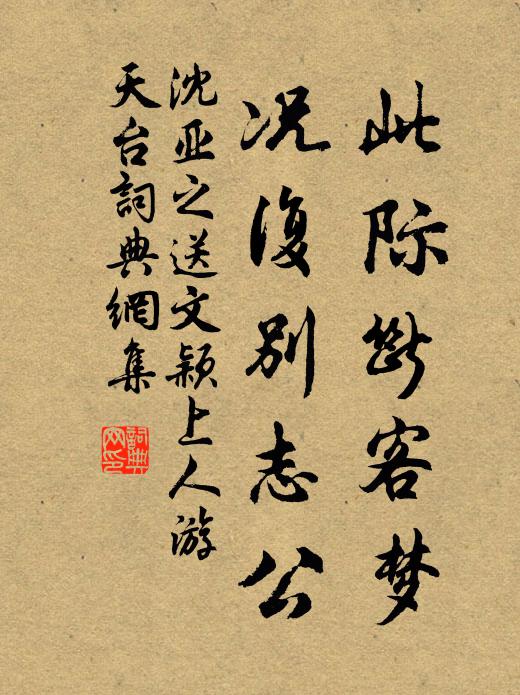 此际断客梦
况复别志公
沈亚之送文颖上人游
天台詞典網集
詞典网印